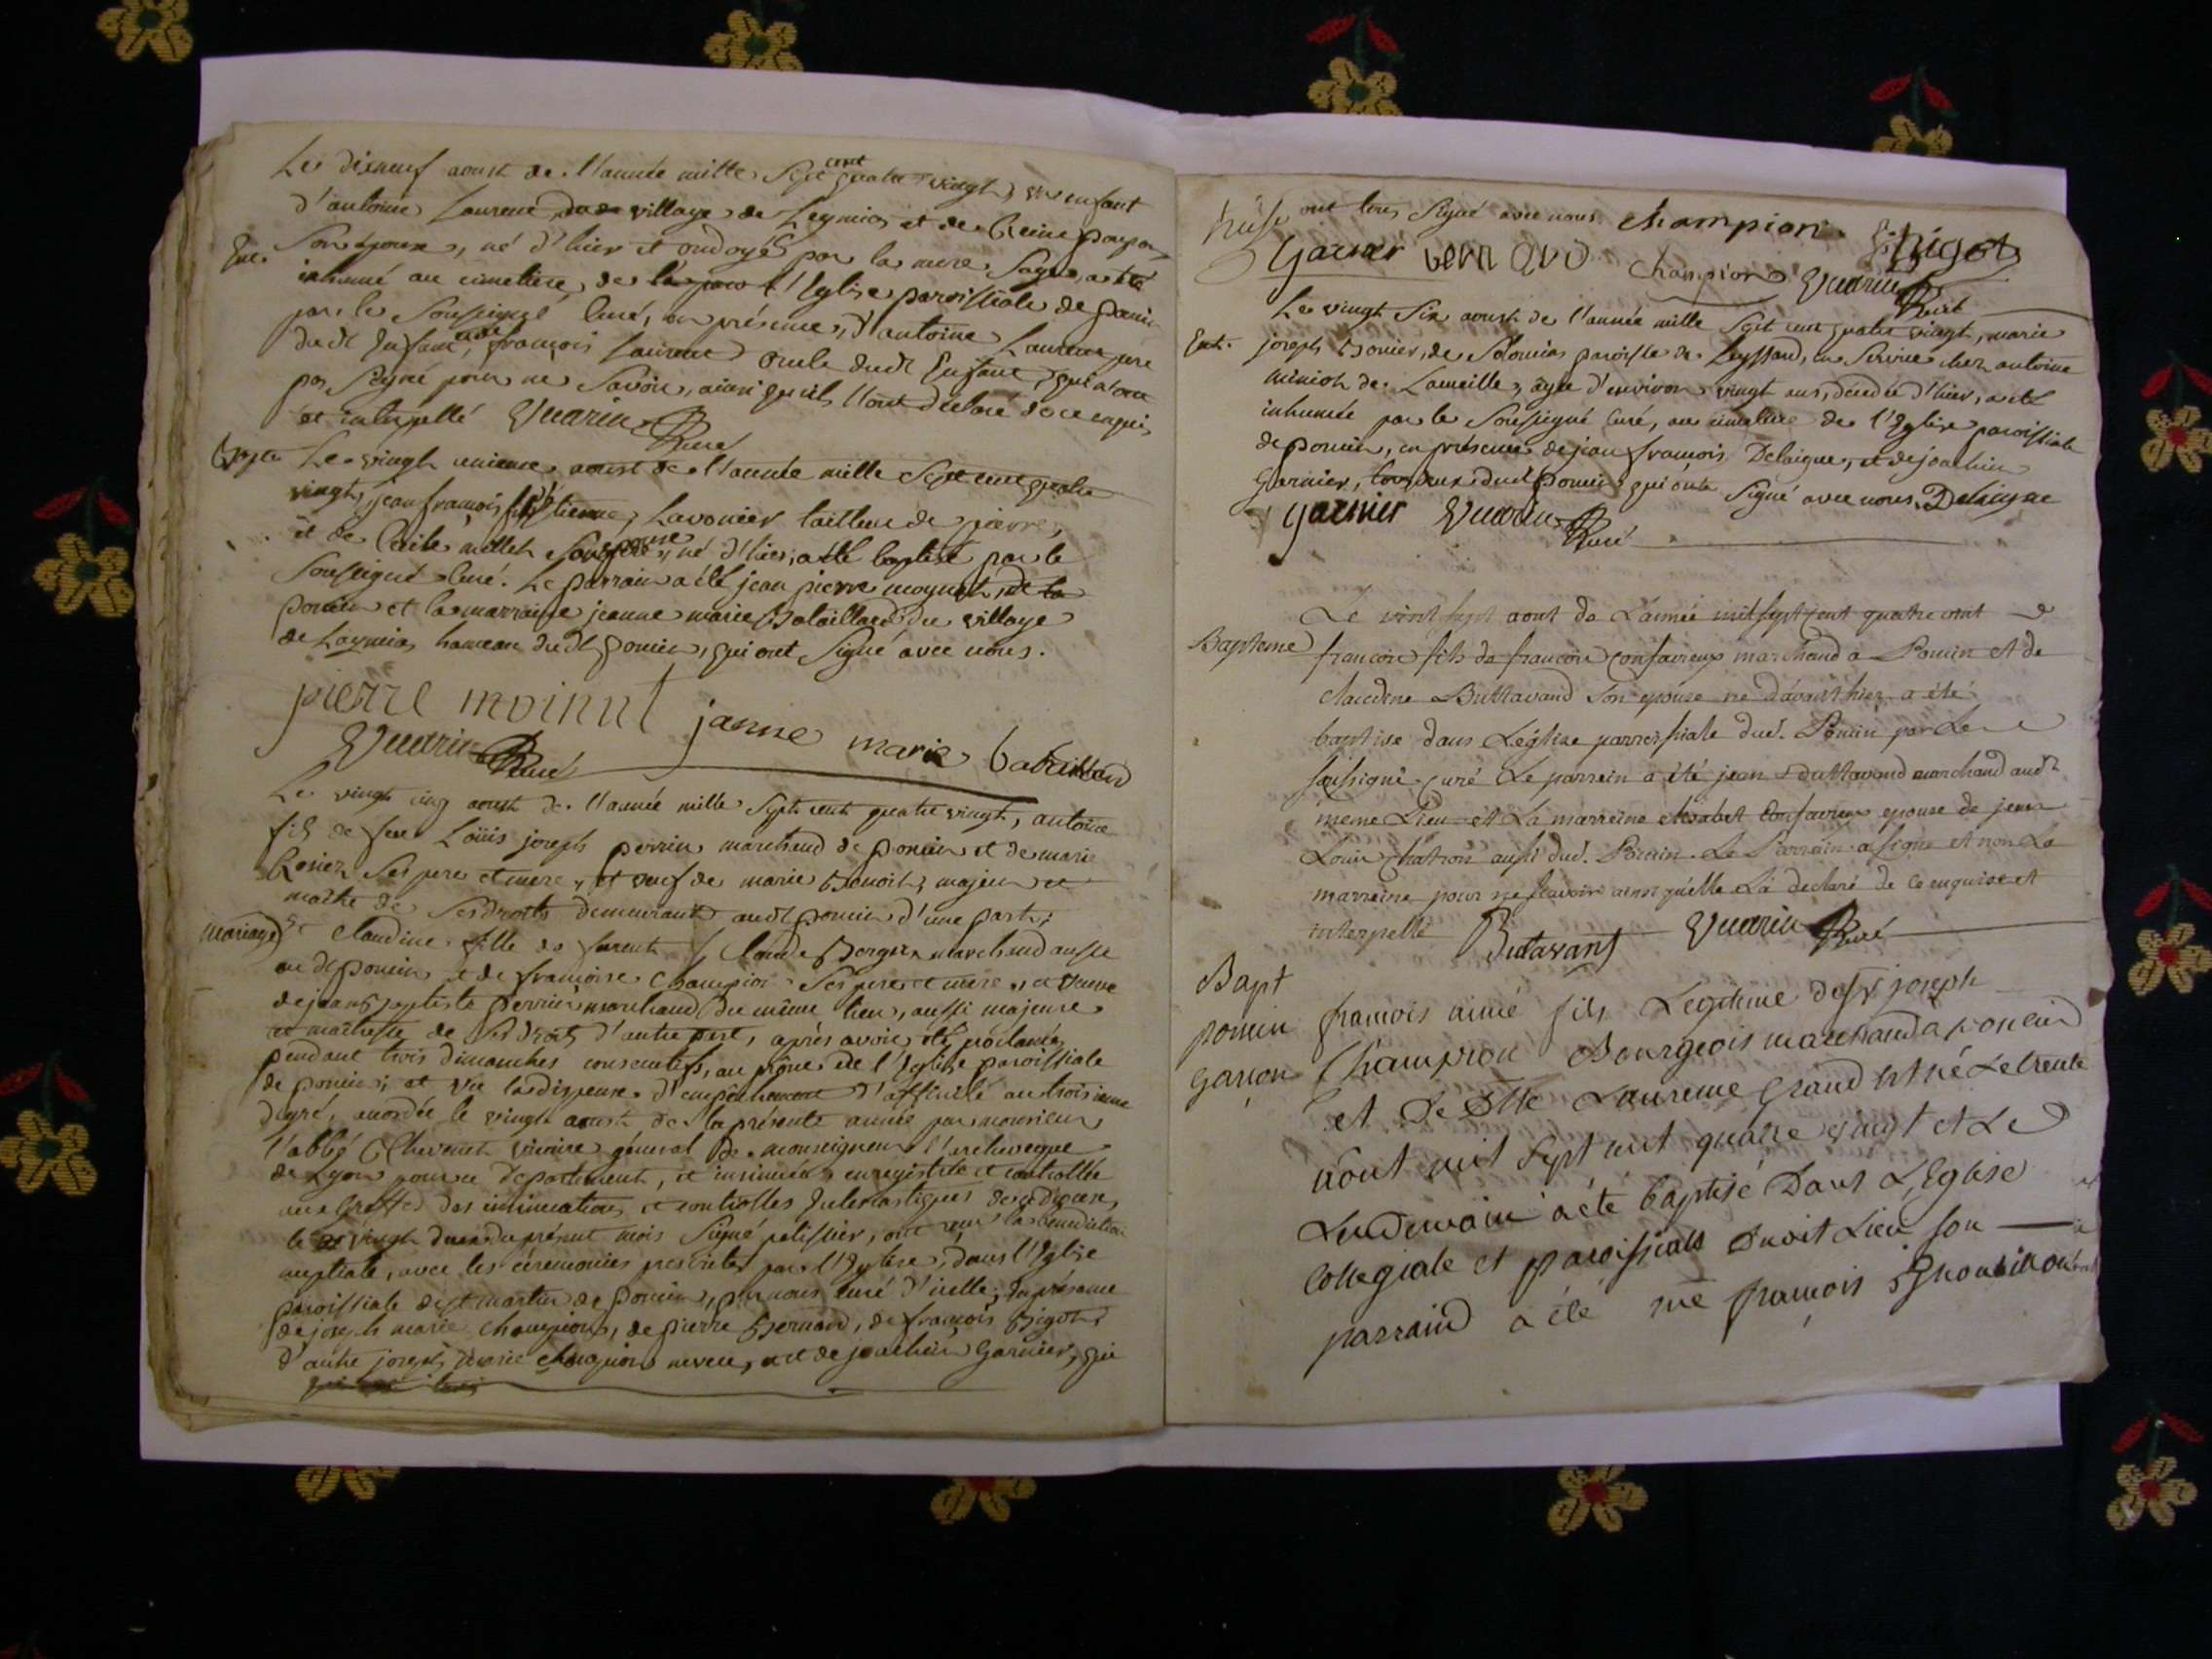 Le disneuf aoust de l'année mille Sept cent quatre vingt, un enfant
d'antoine Laurent du village de Leymia et de Reine
Ent. Son épouse, né d'hier et ondoyé par la mere Sage, a été
inhumé au cimetiere de l'Eglise paroissiale de poncin
par le Soussigné Curé, en présence d'antoine Laurent pere
dudt Enfant et de françois Laurent oncle dudt Enfant, qui n'ont
pas Signé pour ne Savoir, ainsi qu'ils l'ont déclaré de ce enquis
et interpellé Vuarin Curé
Bapt. Le vingt unieme aoust de l'année mille Sept cent quatre
vingt, jean françois fils d'Etienne Lavonier tailleur de pierre,
et de Cécile millet Son épouse, né d'hier, a été baptisé par le
Soussigné Curé. Le parrain a été jean pierre moynet de
poncin et la marraine jeanne marie Bataillard du village
de Leymia hameau dudt poncin, qui ont Signé avec nous.
pierre moinnt janne marie bataillard
Vuarin Curé
Le vingt cinq aoust de l'année mille Sept cent quatre vingt, antoine
fils de feu Loüis joseph perrin marchand de poncin et de marie
Ses pere et mere, et veuf de marie Benoit, majeur et
maitre de Ses droits demeurant audt poncin d'une part;
Mariage Et Claudine fille de Claude Berger marchand aussi
audt poncin et de françoise Champion Ses pere et mere, et veuve
de jean Baptiste perrin marchand du même lieu, aussi majeure
et maitresse de Ses droits d'autre part, après avoir été proclamés
pendant trois dimanches consecutifs, au prône de l'Eglise paroissiale
de poncin; et vu la dispense d'empêchement d'affinité au troisieme
degré, accordée le vingt aoust de la présente année par monsieur
l'abbé vicaire général de monseigneur l'archeveque
de Lyon pour ce departement, et insinuée, enregistrée et controllée
aux Greffes des insinuations et controlles Ecclesiastiques de ce diocese,
le vingt deux du présent mois Signé pelissier, ont reçu la benediction
nuptiale, avec les cérémonies prescrites par l'Eglise, dans l'Eglise
paroissiale de st martin de poncin, par nous curé d'icelle; En présence
de joseph marie Champion, de pierre Bernard, de françois Bigot,
d'autre joseph marie Champion neveu, et de joachim Garnier, qui
ont tous Signé avec nous. Champion Bigot
Garnier Champion Vuarin Curé
Le vingt Six aoust de l'année mille Sept cent quatre vingt, marie
Ent. joseph Bonier, de Solomia paroisse de Leyssard, en Service chez antoine
de Lameille, agée d'environ vingt ans, décedée d'hier, a été
inhumée par le Soussigné Curé, au cimetiere de l'Eglise paroissiale
de poncin, en présence de jean françois Delaigue, et de joachim
Garnier, tous deux dudt poncin, qui ont Signé avec nous. Delaigue
garnier Vuarin Curé
Le vint sept aout de L'anné mil sept cent quatre vint
Bapteme françois fils de françois Confavreux marchand a Poncin et de
Claudine Buttavand Son epouse ne d'avant hier a été
baptise dans L'église parroissiale dud. Poncin par Le
soussigné Curé Le parrein a été jean Buttavand marchand audt
meme Lieu et La marreine elisabet Confavreux epouse de jean
Louis Chatron aussi dud. Poncin. Le Parrein a signé et non La
marreine pour ne scavoir ainsi qu'elle L'a declaré de ce enquise et
interpellé Butavant Vuarin Curé
Bapt
poncin françois aimé fils Legitime de Sr joseph
garçon Champion Bourgeois marchand a poncin
et de Dlle Laureme Grand est né Le trente
aout mil Sept cent quatre vingt et Le
Lendemain a été baptisé Dans L'Eglise
Collegiale et paroissialle dudit Lieu son
parraind a été me françois